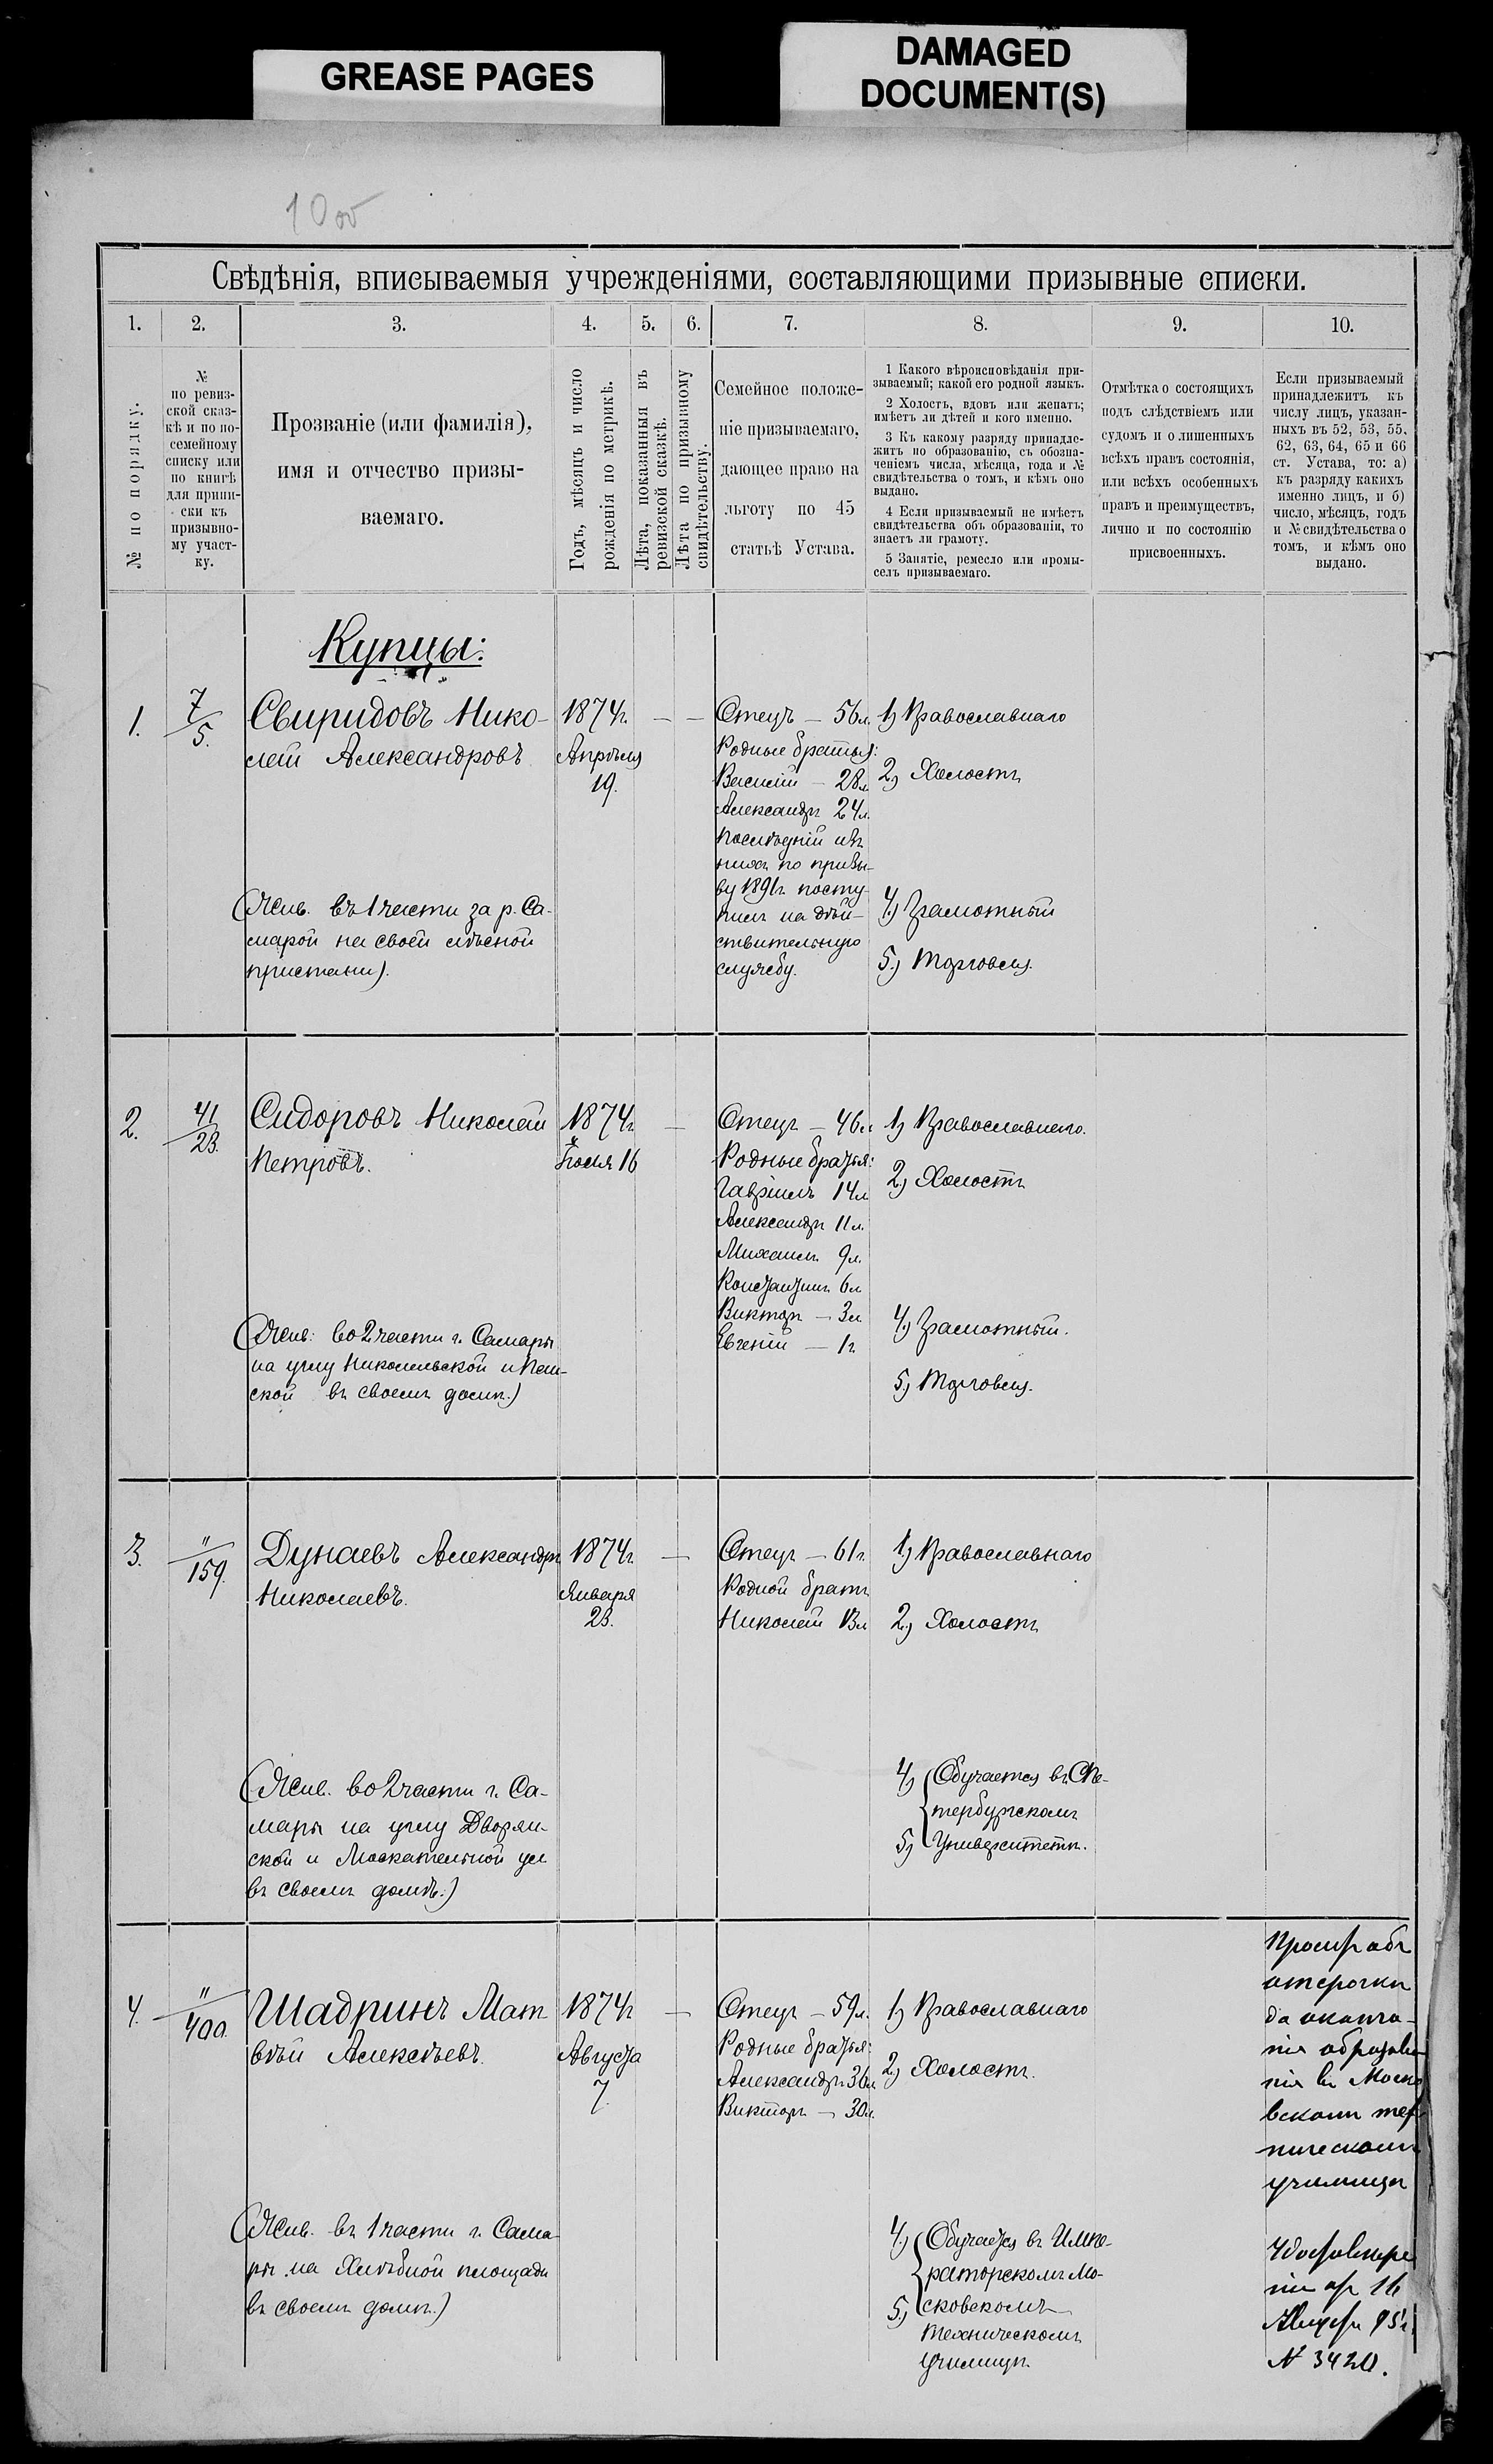 GREASE PAGES
DAMAGED
DOCUMENT(S)
10 об
Свѣдѣнія, вписываемыя учрежденіями, составляющими призывные списки.
1.
2.
3.
4.
5.
6.
7.
8.
9.
10.
№ по порядку.
№
по ревиз-
ской сказ-
кѣ и по по-
семейному
списку или
по книгѣ
для припи-
ски къ
призывно-
му участ-
ку.
Прозваніе (или фамилія),
имя и отчество призы-
ваемаго.
Годъ, мѣсяцъ и число
рожденія по метрикѣ.
Лѣта, показанныя въ
ревизской сказкѣ.
Лѣта по призывному
свидѣтельству.
Семейное положе-
ніе призываемаго,
дающее право на
льготу по 45
статьѣ Устава.
1 Какого вѣроисповѣданія при-
зываемый; какой его родной языкъ.
2 Холостъ, вдовъ или женатъ;
имѣетъ ли дѣтей и кого именно.
3 Къ какому разряду принадле-
житъ по образованію, съ обозна-
ченіемъ числа, мѣсяца, года и №
свидѣтельства о томъ, и кѣмъ оно
выдано.
4 Если призываемый не имѣетъ
свидѣтельства объ образованіи, то
знаетъ ли грамоту.
5 Занятіе, ремесло или промы-
селъ призываемаго.
Отмѣтка о состоящихъ
подъ слѣдствіемъ или
судомъ и о лишенныхъ
всѣхъ правъ состоянія,
или всѣхъ особенныхъ
правъ и преимуществъ,
лично и по состоянію
присвоенныхъ.
Если призываемый
принадлежитъ къ
числу лицъ, указан-
ныхъ въ 52, 53, 55,
62, 63, 64, 65 и 66
ст. Устава, то: а)
къ разряду какихъ
именно лицъ, и б)
число, мѣсяцъ, годъ
и № свидѣтельства о
томъ, и кѣмъ оно
выдано.
Купцы:
1.
7
5.
Свиридовъ Нико-
лай Александровъ
(Жив. въ 1 части за р. Са-
марой на своей лѣсной
пристани).
1874г.
Апрѣля
19.
—
—
Отецъ — 56л.
Родные братья:
Василій — 28л.
Александръ 24л.
Послѣдній
по призы-
ву 1891г. посту-
пилъ на дѣй-
ствительную
службу.
1) Православнаго
2) Холостъ
4.) Грамотный
5.) Торговля.
2.
41
23.
Сидоровъ Николай
Петровъ.
(Жив: во 2 части г. Самары
на углу Никольской и
ской въ своемъ домѣ.)
1874г
16
—
Отецъ — 46л
Родные братья:
Гавріилъ 14л
Александръ 11л.
Михаилъ 9л.
Константинъ 6л
Викторъ — 3л
Евгеній — 1г
1) Православнаго.
2) Холостъ
4.) Грамотный.
5) Торговля.
3.
"
159.
Дунаевъ Александръ
Николаевъ.
(Жив. во 2 части г. Са-
мары на углу Дворян-
ской и Москательной ул
въ своемъ домѣ.)
1874г.
Января
23.
—
Отецъ — 61г.
Родной братъ
Николай 13л
1) Православнаго
2) Холостъ
4) Обучается въ С Пе-
тербургскомъ
5) Университетѣ.
4.
"
400.
Шадринъ Мат-
вѣй Алексѣевъ.
(Жив. въ 1 части г. Сама-
ры на Хлѣбной площади
въ своемъ домѣ.)
1874г
Августа
7.
—
Отецъ — 59л.
Родные братья:
Александръ 36л
Викторъ — 30л.
1) Православнаго
2) Холостъ.
4.) Обучается въ Импе-
раторскомъ Мо-
5.) сковскомъ
техническомъ
Училищѣ.
Проситъ объ
отсрочкѣ
до оконча-
нія образова-
нія въ Моско
вскомъ тех
ническомъ
училищѣ
Удостовѣре
ніе от 16
Августа 95г.
№ 3420.